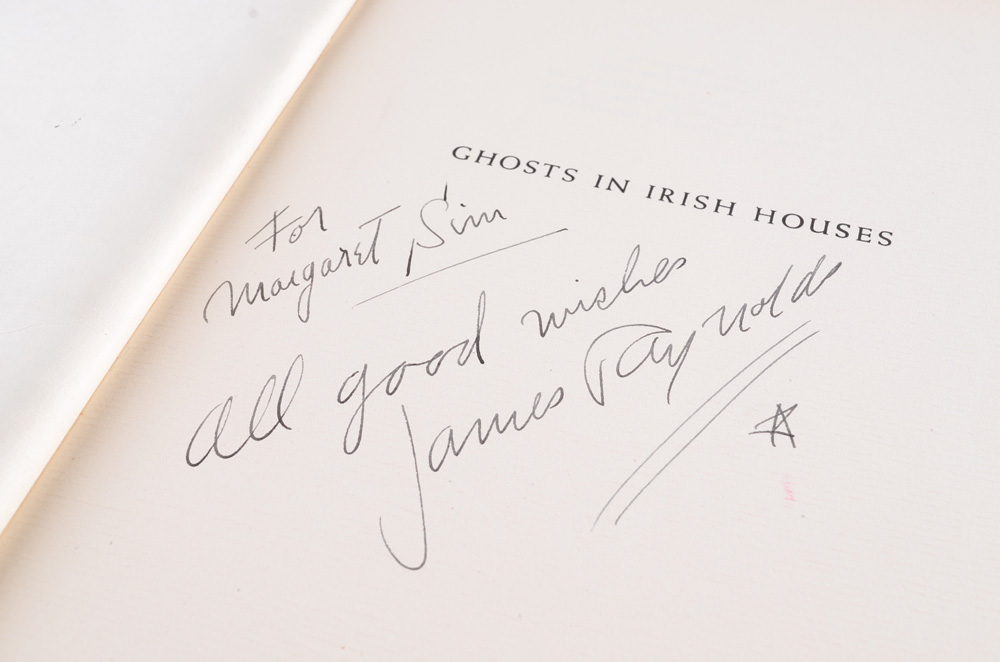 GHOSTS IN IRISH HOUSES
For
Margaret Sim
all good wishes
James Raynolds